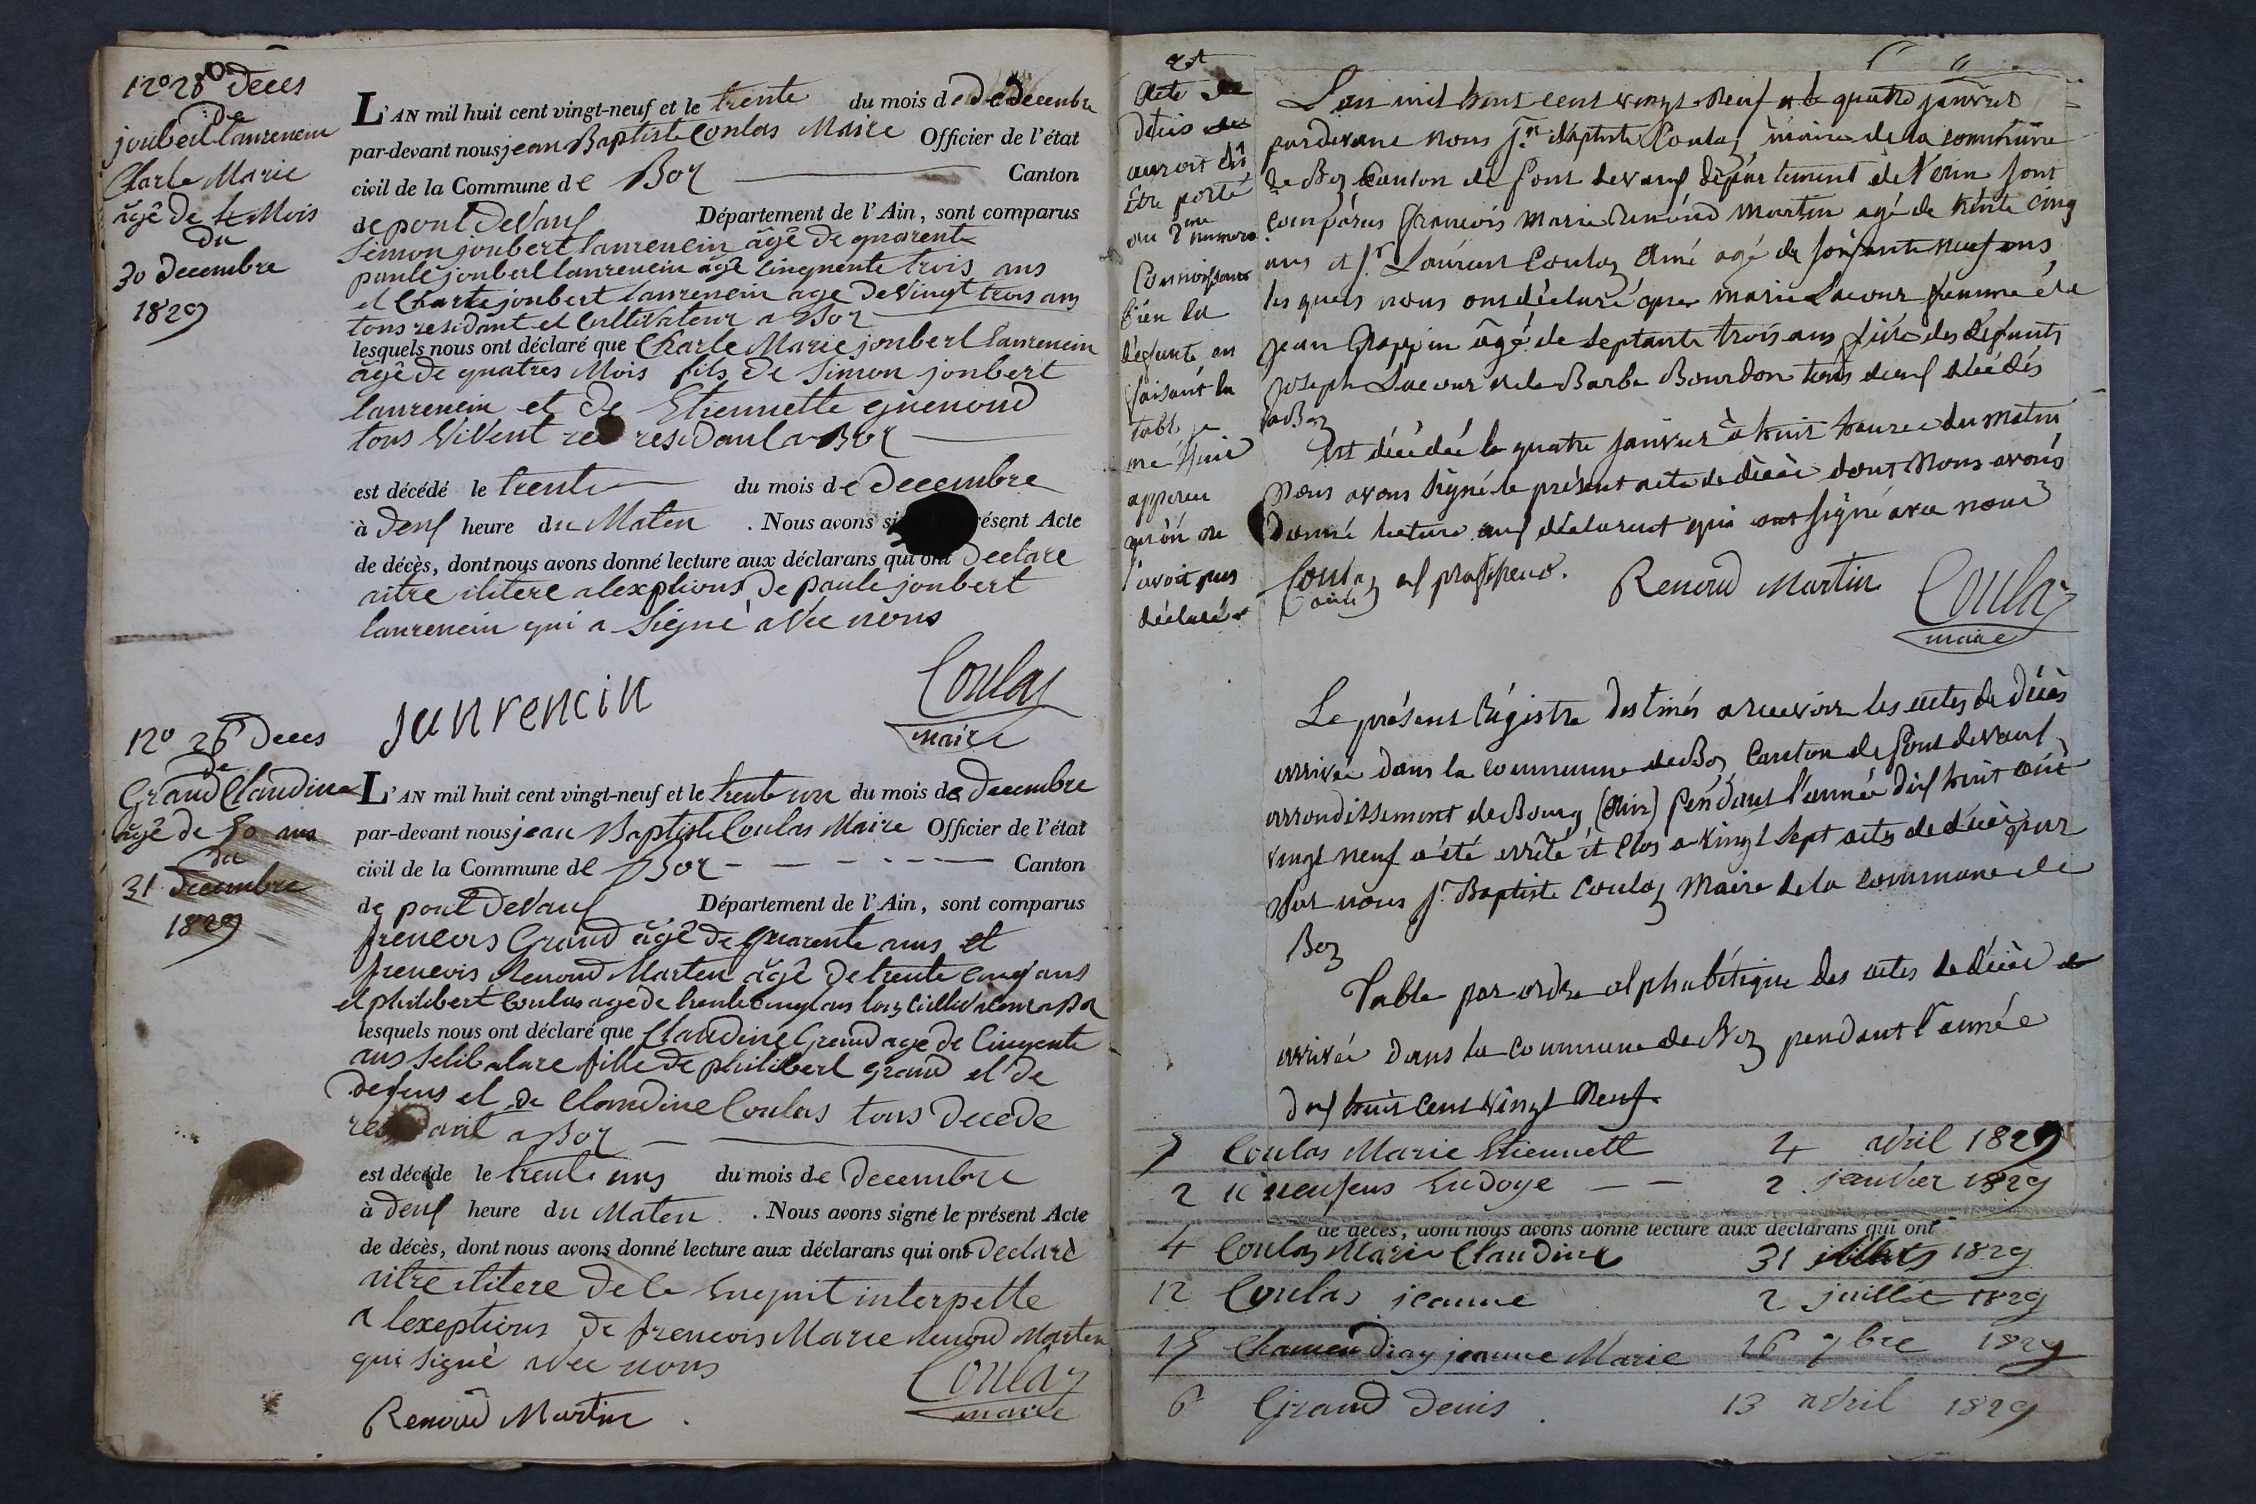 N° 25 Deces
de
joubert laurencin
Charle Marie
âgê de 4 Mois
du
30 decembre
1829
L'AN mil huit cent vingt-neuf et le trente du mois de decembre
par-devant nous jean Baptiste Coulas Maire Officier de l'état
civil de la Commune de Boz Canton
de pont DeVaux Département de l'Ain, sont comparus
Simon joubert laurencin âgê de quarente
paule joubert laurencin âgê cinquente trois ans
et Charle joubert laurencin age de vingt trois ans
tous residant et Cultivateur a Boz
lesquels nous ont déclaré que Charle Marie joubert laurencin
âgê de quatres Mois fils de Simon joubert
laurencin et De Etiennette guenoud
tous ViVent residant a Boz
est décédé le trente du mois de decembre
à deux heure du Maten . Nous avons présent Acte
de décès, dont nous avons donné lecture aux déclarans qui ont Declare
aitre ilitere alexptions De paule joubert
laurencin qui a Signè aVec nous
laurencin
Coulas
maire
N° 26 Deces
de
Grand Claudine
âgê de 50 ans
du
31 decembre
1829
L'AN mil huit cent vingt-neuf et le trente un du mois de decembre
par-devant nous jean Baptiste Coulas Maire Officier de l'état
civil de la Commune de Boz Canton
de pont DeVaux Département de l'Ain, sont comparus
frencois Grand âgê De quarente ans et
frencois Renoud Marten âgê De trente cinq ans
et philibert Coulas age de trente cinq ans tous Cultivateur a Boz
lesquels nous ont déclaré que Claudine Grand age de Cinqente
ans Selibataire fille de philibert grand et de
defens et de Claudine Coulas tous Decede
a Boz
est décéde le trente uns du mois de Decembre
à deux heure du Maten . Nous avons signé le présent Acte
de décès, dont nous avons donné lecture aux déclarans qui ont Declarè
aitre ilitere De le Enquit interpelle
a lexeptions De frencois Marie Renoud Marten
qui Signè aVec nous
Renoud Martin
Coulas
maire
Acte de
déceis
auroit dû
Etre porté
au 2me numero
Connoissant
bien la
défunte en
faisant la
table je
me suis
apperçu
qu'on ne
l'avoit pas
déclaré
L'an mil huit cent vingt neuf et le quatre janvier
pardevant nous Jn Baptiste Coulaz maire de la commune
de Boz Canton de Pont devaux département de l'ain sont
comparus françois Marie Renoud Martin agé de trente cinq
ans et Sr Laurent Coulaz Ainé agé de soixante neuf ans
les quels nous ont déclaré que marie Lacour femme de
Jean Grappin âgé de septante trois ans fille des défunts
Joseph Lacour et de Barbe Bourdon tous deux décédés
a Boz
Est décédée le quatre janvier à huit heures du matin
Nous avons signé le présent acte de décès dont Nous avons
donné lecture aux déclarant qui ont signé avec nous
Coulaz
Renoud Martin
Coulaz
maire
Le présent Régistre destinés a recevoir les actes de décès
arrivée dans la commune de Boz Canton de Pont devaux
arrondissement de Bourg (Ain) pendant l'année dix huit cent
vingt neuf a été arrêté et clos a vingt sept actes de décès par
nous Jn Baptiste Coulaz Maire de la commune de
Boz
Table par ordre alphabétique des actes de décès
arrivée dans la commune de Boz pendant l'année
dix huit cent vingt Neuf
7 Coulas Marie Etiennett 4 avril 1829
2 2 janvier 1829
de décès, dont nous avons donné lecture aux déclarans qui ont
4 Coulas Marie Claudine 31 1829
12 Coulas jeanne 2 juillet 1829
15 jeanne Marie 16 7bre 1829
6 Grand Denis 13 avril 1829